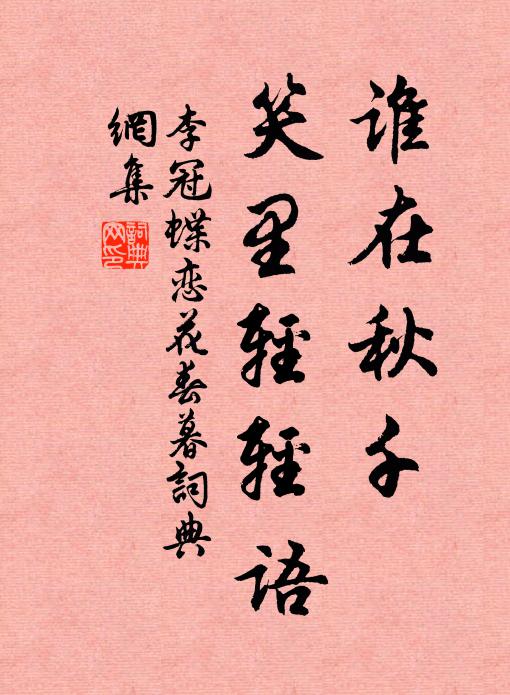 谁在秋千
笑里轻轻语
李冠蝶恋花春暮词典
網集
詞典
网印